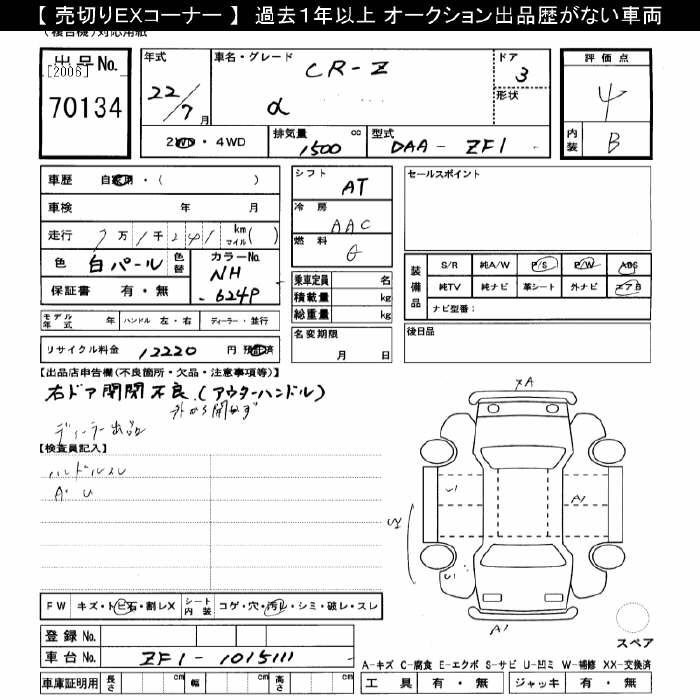 【 売切りEXコーナー 】 過去１年以上 オークション出品歴がない車両
(複合機)対応用紙
出品No.
[2006]
70134
年式
22/7月
車名・グレード
CR-Z
α
ドア
3
形状
評価点
4
内装
B
2WD・4WD
排気量
1500 cc
型式
DAA- ZF1
車歴 自家用・( )
車検 年 月
走行 7万1千241 km マイル( )
色 白パール 色替
カラーNo. NH-624P
保証書 有・無
シフト AT
冷房 AAC
燃料 G
セールスポイント
乗車定員 名
積載量 kg
総重量 kg
装備品
S/R 純A/W P/S P/W ABS
純TV 純ナビ 革シート 外ナビ エアB
ナビ型番：
モデル年式 年 ハンドル 左・右 ディーラー・並行
名変期限 月 日
後日品
リサイクル料金 12220 円 預託済
【出品店申告欄(不良箇所・欠品・注意事項等)】
右ドア開閉不良.(アウターハンドル)
外から開かず
ディーラー出品
【検査員記入】
ハンドルスレ
A・U
XA
U1
A1
U1
A1
FW キズ・トビ石・割レX シート内装 コゲ・穴・汚レ・シミ・破レ・スレ
登録No.
車台No. ZF1-1015111
スペア
A-キズ C-腐食 E-エクボ S-サビ U-凹ミ W-補修 XX-交換済
車庫証明用 長さ cm 幅 cm 高さ cm
工具 有・無 ジャッキ 有・無